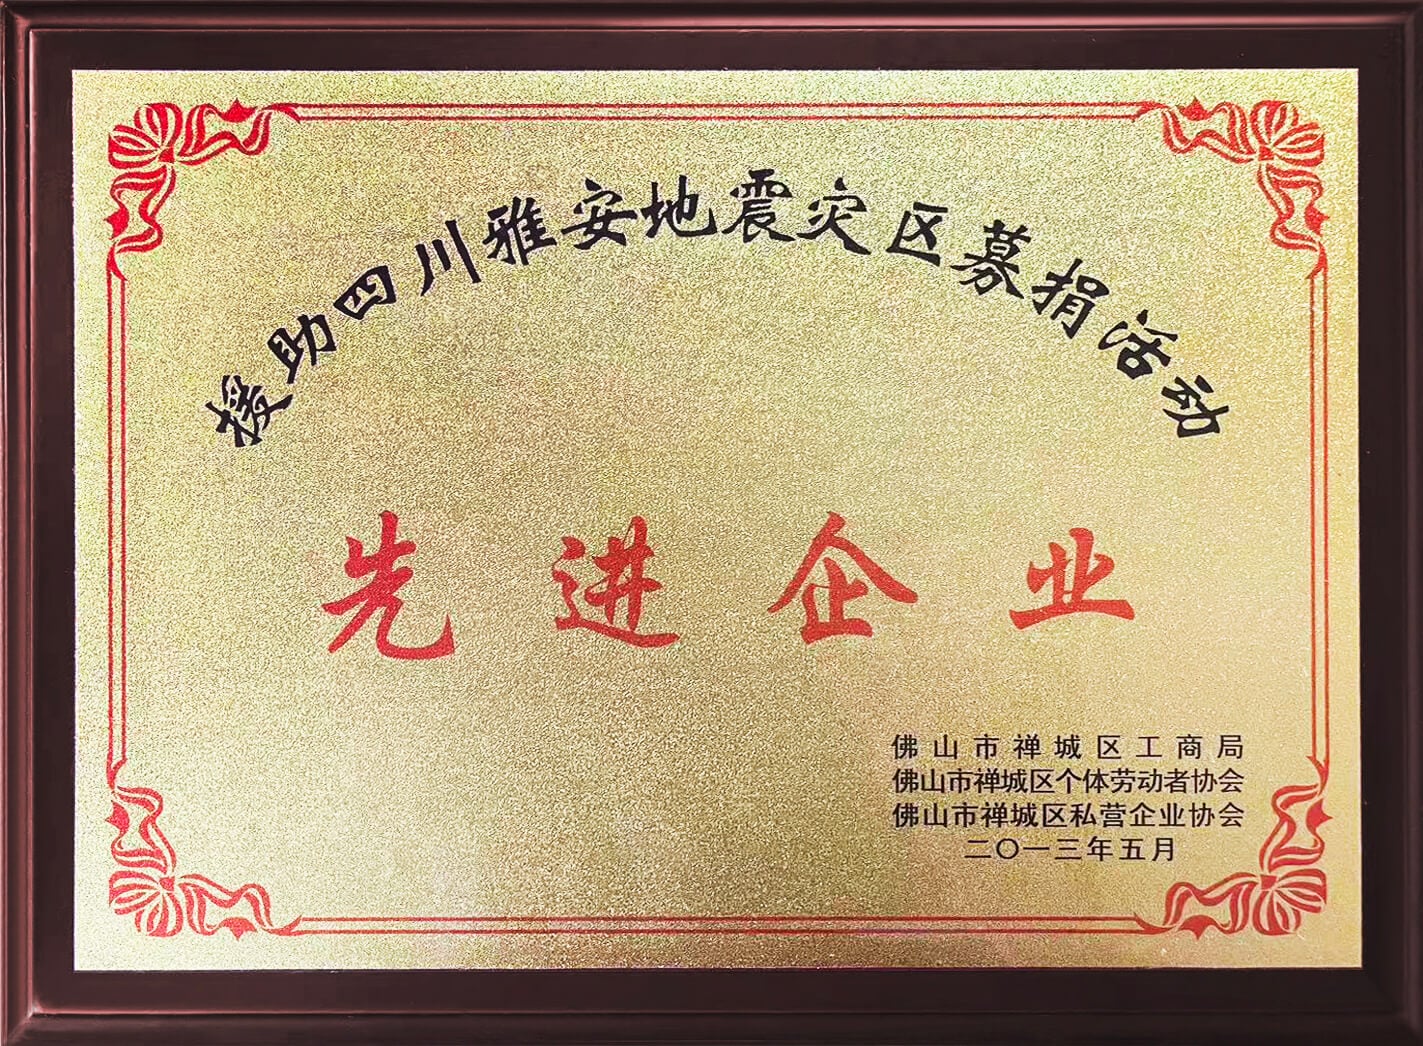 援助四川雅安地震灾区募捐活动
先进企业
佛山市禅城区工商局
佛山市禅城区个体劳动者协会
佛山市禅城区私营企业协会
二〇一三年五月